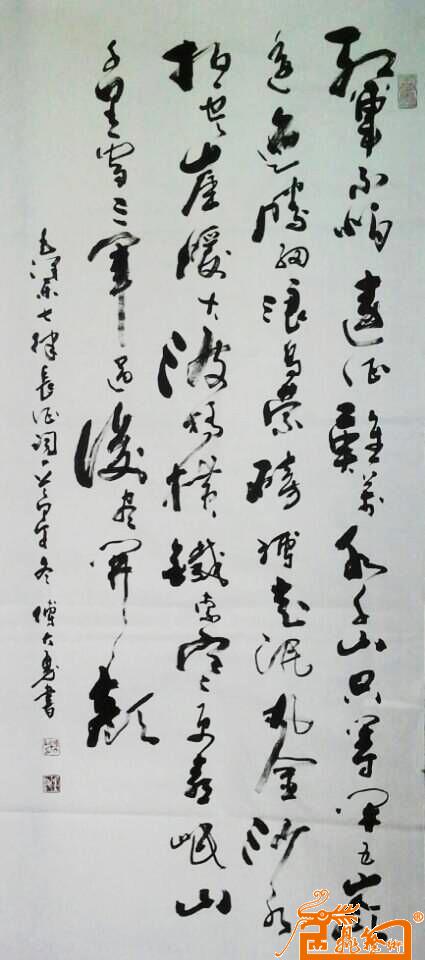 紅軍不怕遠征難萬水千山只等閒五嶺
逶迤騰細浪烏蒙磅礴走泥丸金沙水
拍雲崖暖大渡橋橫鐵索寒更喜岷山
千里雪三軍過後盡開顏
毛澤东七律長征詞 冬 傅大書